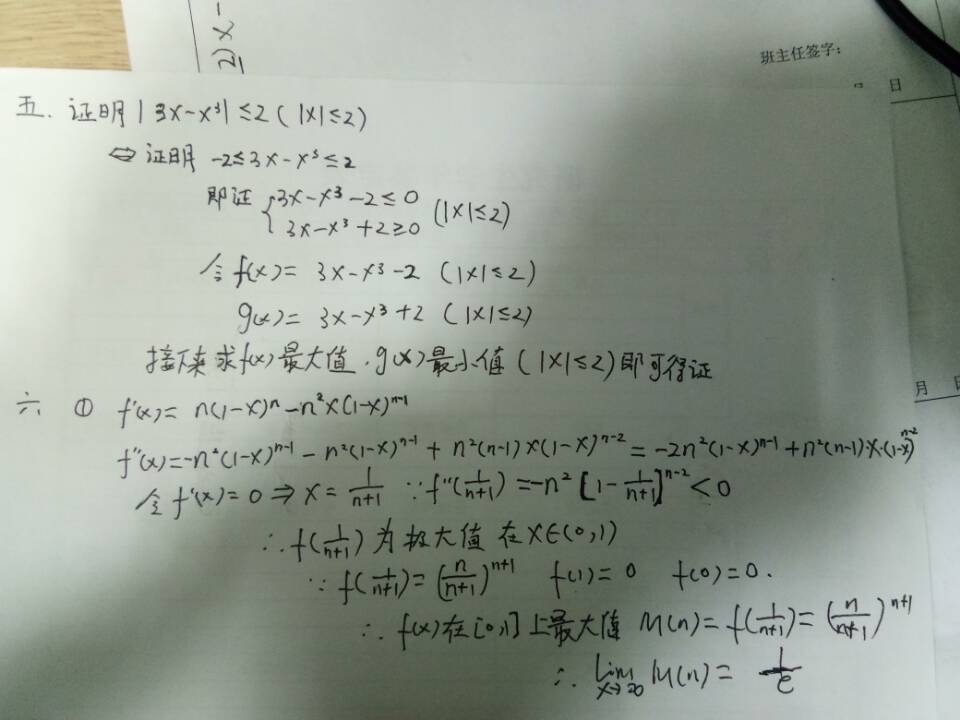 班主任签字:
日
2) x-
月 日
五. 证明 |3x-x³| ≤ 2 ( |x| ≤ 2)
⇔ 证明 -2≤3x-x³≤2
即证 { 3x-x³-2≤0
3x-x³+2≥0 (|x|≤2)
令 f(x)= 3x-x³-2 (|x|≤2)
g(x)= 3x-x³+2 (|x|≤2)
接下来求f(x)最大值.g(x)最小值(|x|≤2)即可得证
六 ① f'(x)= n(1-x)ⁿ-n²x(1-x)ⁿ⁻¹
f''(x)=-n²(1-x)ⁿ⁻¹-n²(1-x)ⁿ⁻¹+n²(n-1)x(1-x)ⁿ⁻²=-2n²(1-x)ⁿ⁻¹+n²(n-1)x·(1-x)ⁿ⁻²
令f'(x)=0⇒x=1/(n+1) ∵f''(1/(n+1))=-n²[1-1/(n+1)]ⁿ⁻²<0
∴f(1/(n+1))为极大值 在x∈(0,1)
∵f(1/(n+1))=(n/(n+1))ⁿ⁺¹ f(1)=0 f(0)=0.
∴f(x)在[0,1]上最大值 M(n)=f(1/(n+1))=(n/(n+1))ⁿ⁺¹
∴ lim x→∞ M(n)= 1/e